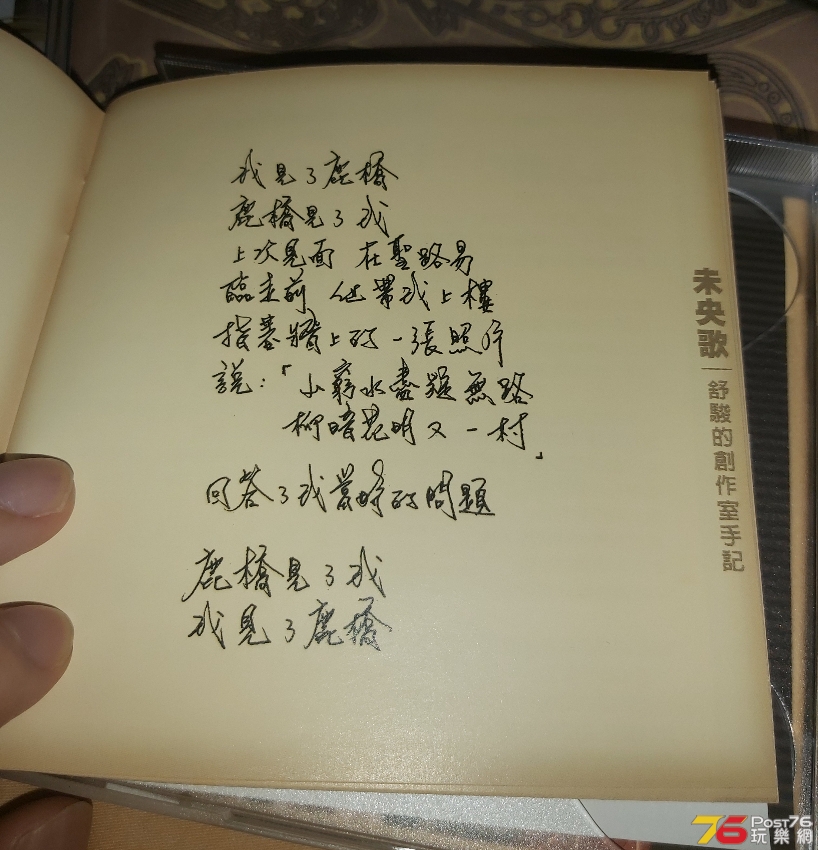 我見了鹿橋
鹿橋見了我
上次見面 在聖路易
臨走前 他帶我上樓
指著牆上的一張照片
說：「山窮水盡疑無路
柳暗花明又一村」
回答了我當時的問題
鹿橋見了我
我見了鹿橋
未央歌—舒駿的創作室手記
76 Post76
玩樂網